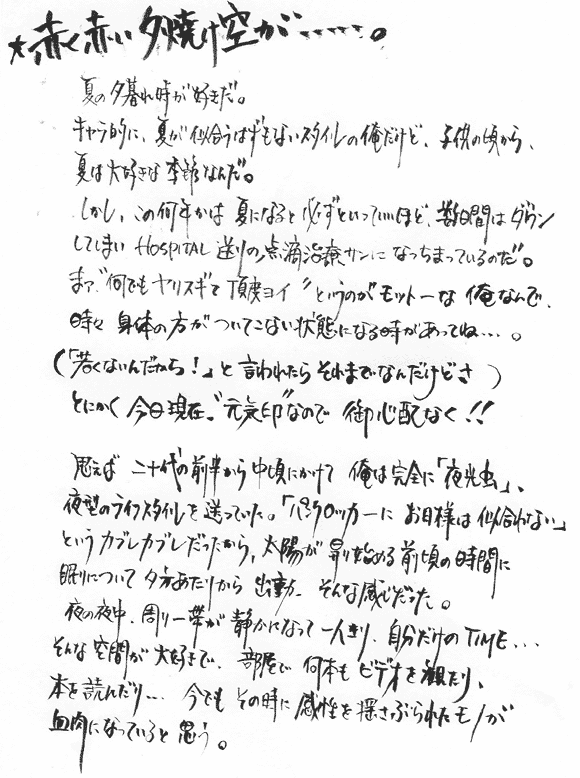 ★赤く赤い夕焼け空が……。
夏の夕暮れ時が好きだ。
キャラ的に、夏が似合うはずもないスタイルの俺だけど、子供の頃から、
夏は大好きな季節なんだ。
しかし、この何年かは夏になると必ずといっていいほど、数日間はダウン
してしまいHOSPITAL送りの点滴治療サンになっちまっているのだ。
まァ“何でもヤリスギて頂度ヨイ”というのがモットーな俺なんで、
時々身体の方がついてこない状態になる時があってね…。
(「若くないんだから!」と言われたらそれまでなんだけどさ)
とにかく今日現在、“元気印”なので御心配なく!!
思えば二十代の前半から中頃にかけて俺は完全に「夜光虫」、
夜型のライフスタイルを送っていた。「パンクロッカーにお日様は似合わない」
というカブレカブレだったから、太陽が昇り始める前頃の時間に
眠りについて夕方あたりから出動、そんな感じだった。
夜の夜中、周り一帯が静かになって一人きり、自分だけのTIME...
そんな空間が大好きで、部屋で何本もビデオを観たり、
本を読んだり…今でもその時に感性を揺さぶられたモノが
血肉になっていると思う。